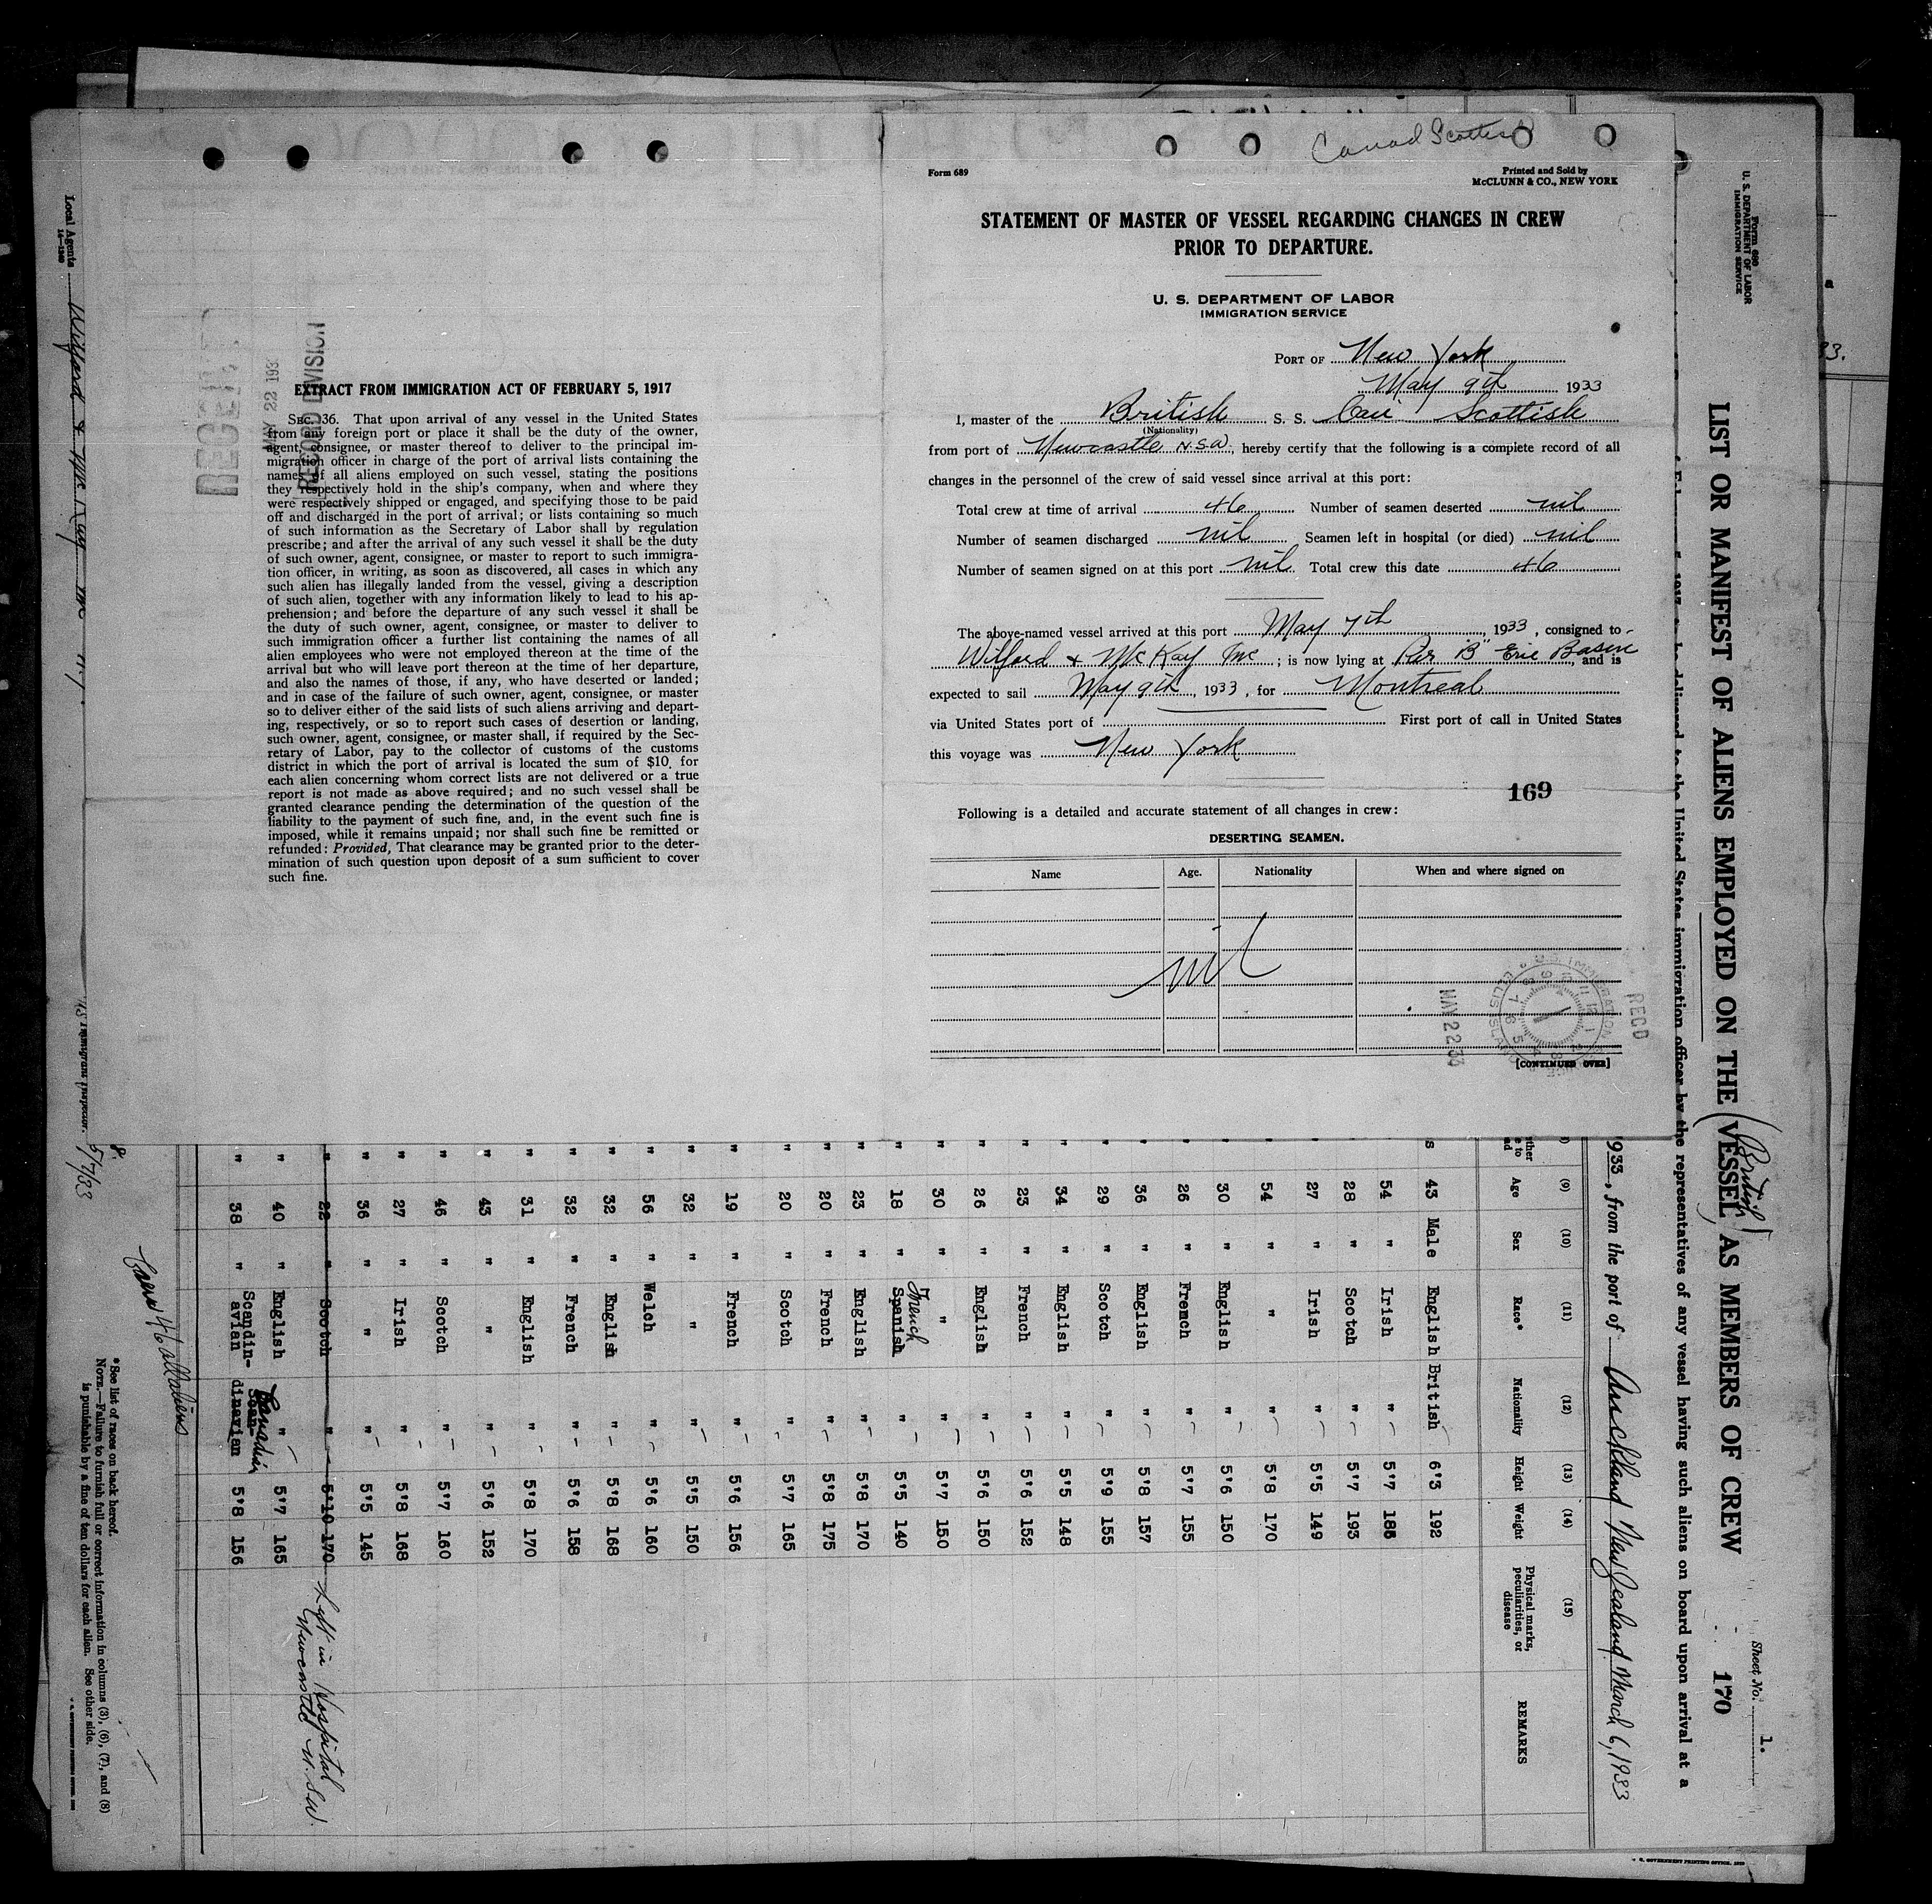 Canad Scottish
Form 689
Printed and Sold by
McCLUNN & CO., NEW YORK
STATEMENT OF MASTER OF VESSEL REGARDING CHANGES IN CREW
PRIOR TO DEPARTURE.
U. S. DEPARTMENT OF LABOR
IMMIGRATION SERVICE
PORT OF New York
May 9th 1933
I, master of the British S. S. Can Scottish
(Nationality)
from port of Newcastle N.S.W., hereby certify that the following is a complete record of all
changes in the personnel of the crew of said vessel since arrival at this port:
Total crew at time of arrival 46 Number of seamen deserted nil
Number of seamen discharged nil Seamen left in hospital (or died) nil
Number of seamen signed on at this port nil Total crew this date 46
The above-named vessel arrived at this port May 7th, 1933, consigned to
Wilford & McKay Inc; is now lying at Pier "B" Erie Basin, and is
expected to sail May 9th, 1933, for Montreal
via United States port of First port of call in United States
this voyage was New York
169
Following is a detailed and accurate statement of all changes in crew:
DESERTING SEAMEN.
Name Age. Nationality When and where signed on
nil
MAY 22 33
RECD
[CONTINUED OVER]
RECORD DIVISION
MAY 22 193
EXTRACT FROM IMMIGRATION ACT OF FEBRUARY 5, 1917
SEC. 36. That upon arrival of any vessel in the United States
from any foreign port or place it shall be the duty of the owner,
agent, consignee, or master thereof to deliver to the principal im-
migration officer in charge of the port of arrival lists containing the
names of all aliens employed on such vessel, stating the positions
they respectively hold in the ship's company, when and where they
were respectively shipped or engaged, and specifying those to be paid
off and discharged in the port of arrival; or lists containing so much
of such information as the Secretary of Labor shall by regulation
prescribe; and after the arrival of any such vessel it shall be the duty
of such owner, agent, consignee, or master to report to such immigra-
tion officer, in writing, as soon as discovered, all cases in which any
such alien has illegally landed from the vessel, giving a description
of such alien, together with any information likely to lead to his ap-
prehension; and before the departure of any such vessel it shall be
the duty of such owner, agent, consignee, or master to deliver to
such immigration officer a further list containing the names of all
alien employees who were not employed thereon at the time of the
arrival but who will leave port thereon at the time of her departure,
and also the names of those, if any, who have deserted or landed;
and in case of the failure of such owner, agent, consignee, or master
so to deliver either of the said lists of such aliens arriving and depart-
ing, respectively, or so to report such cases of desertion or landing,
such owner, agent, consignee, or master shall, if required by the Sec-
retary of Labor, pay to the collector of customs of the customs
district in which the port of arrival is located the sum of $10. for
each alien concerning whom correct lists are not delivered or a true
report is not made as above required; and no such vessel shall be
granted clearance pending the determination of the question of the
liability to the payment of such fine, and, in the event such fine is
imposed, while it remains unpaid; nor shall such fine be remitted or
refunded: Provided, That clearance may be granted prior to the deter-
mination of such question upon deposit of a sum sufficient to cover
such fine.
Form 680
U. S. DEPARTMENT OF LABOR
IMMIGRATION SERVICE
Sheet No. 1.
LIST OR MANIFEST OF ALIENS EMPLOYED ON THE (British) VESSEL, AS MEMBERS OF CREW
170
to be delivered to the United States immigration officer by the representatives of any vessel having such aliens on board upon arrival at a
1933, from the port of Auckland New Zealand March 6, 1933
(9) (10) (11) (12) (13) (14) (15)
Age Sex Race* Nationality Height Weight Physical marks, peculiarities, or disease REMARKS
s 43 Male English British 6'3 192
" 54 " Irish " 5'7 186
" 28 " Scotch " 5'7 193
" 27 " Irish " 5'5 149
" 54 " " " 5'8 170
" 30 " English " 5'6 150
" 26 " French " 5'7 155
" 36 " English " 5'8 157
" 29 " Scotch " 5'9 155
" 34 " English " 5'5 148
" 23 " French " 5'6 152
" 26 " English " 5'6 150
" 30 " " " 5'7 150
" 18 " Spanish French " 5'5 140
" 23 " English " 5'8 170
" 20 " French " 5'8 175
" 20 " Scotch " 5'7 165
" 19 " French " 5'6 156
" 32 " " " 5'5 150
" 56 " Welch " 5'6 160
" 32 " English " 5'8 168
" 32 " French " 5'6 158
" 31 " English " 5'8 170
" 43 " " " 5'6 152
" 46 " Scotch " 5'7 160
" 27 " Irish " 5'8 168
" 36 " " " 5'5 145
" 22 " Scotch " 5'10 170 Left in Hospital Newcastle N.S.W.
" 40 " English " 5'7 165
" 38 " Scandin-avian Scan-dinavian Canadian 5'8 156
Crew 46 all aliens
*See list of races on back hereof.
NOTE.—Failure to furnish full or correct information in columns (3), (6), (7), and (8)
is punishable by a fine of ten dollars for each alien. See other side.
Local Agents Wilford & McKay Inc N.Y.
14—1240
Immigrant Inspector.
5/7/33
U. S. GOVERNMENT PRINTING OFFICE